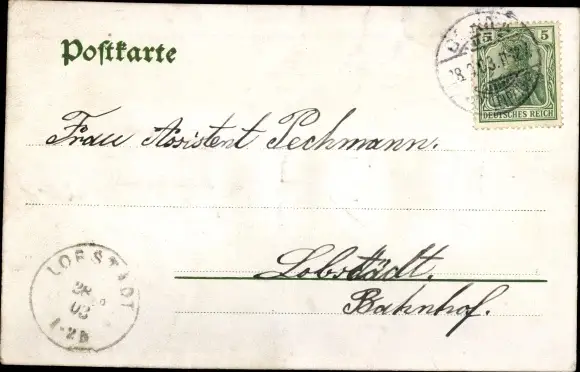 Postkarte
5 5
DEUTSCHES REICH
Frau Assistent Pechmann.
Lobstädt.
Bahnhof.
LOBSTÄDT
28
03
1-2 N